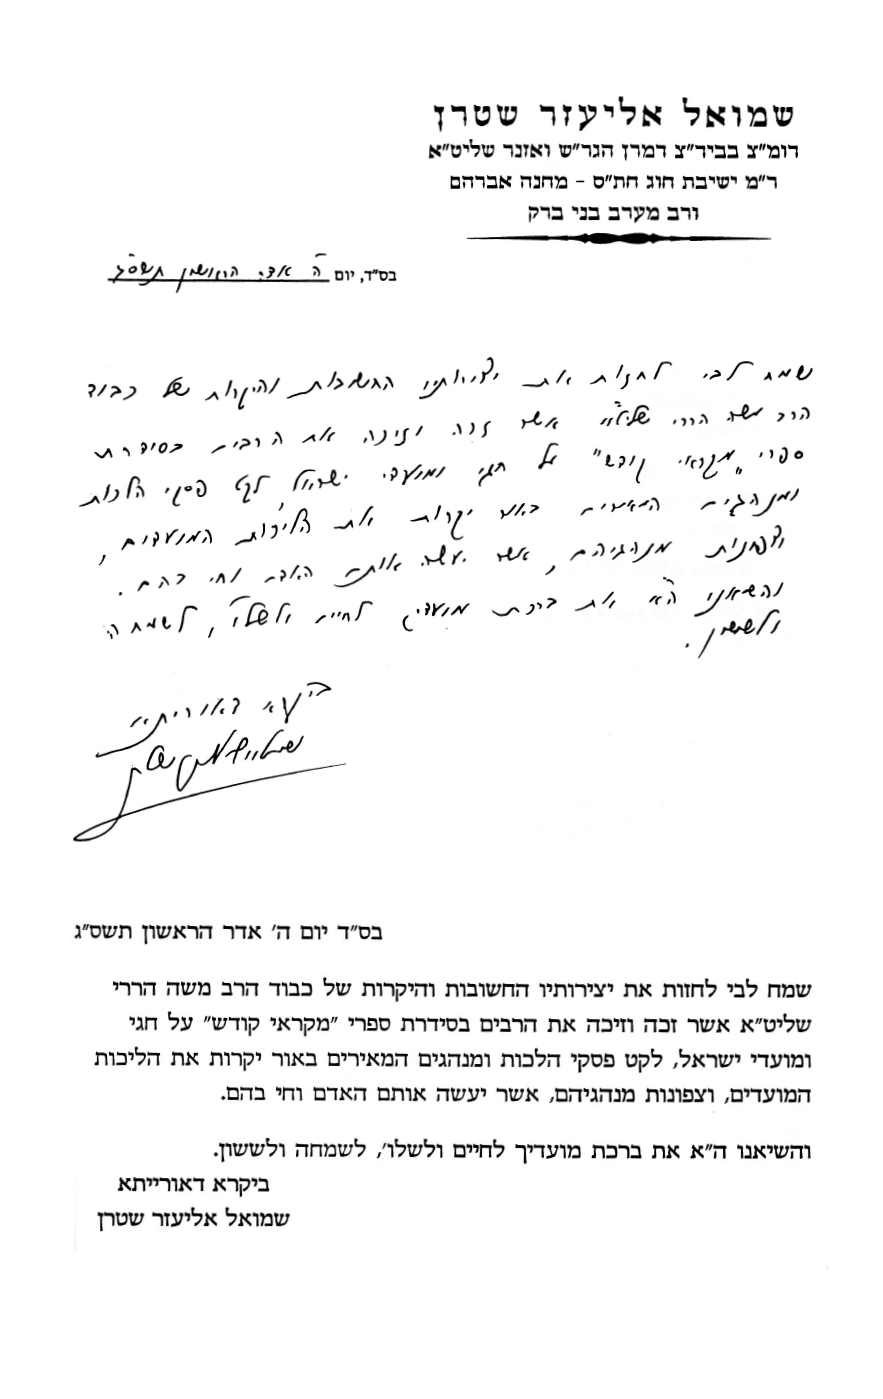 שמואל אליעזר שטרן
דומ"צ בביד"צ דמרן הגר"ש ואזנר שליט"א
ר"מ ישיבת חוג חת"ס - מחנה אברהם
ורב מערב בני ברק
בס"ד, יום ה' אדר הראשון תשס"ג
שמח לבי לחזות את יצירותיו החשובות והיקרות של כבוד
הרב משה הררי שליט"א אשר זכה וזיכה את הרבים בסידרת
ספרי "מקראי קודש" על חגי ומועדי ישראל, לקט פסקי הלכות
ומנהגים המאירים באור יקרות את הליכות המועדים,
וצפונות מנהגיהם, אשר יעשה אותם האדם וחי בהם.
והשיאנו ה"א את ברכת מועדיך לחיים ולשלו', לשמחה
ולששון.
ביקרא דאורייתא
בס"ד יום ה' אדר הראשון תשס"ג
שמח לבי לחזות את יצירותיו החשובות והיקרות של כבוד הרב משה הררי
שליט"א אשר זכה וזיכה את הרבים בסידרת ספרי "מקראי קודש" על חגי
ומועדי ישראל, לקט פסקי הלכות ומנהגים המאירים באור יקרות את הליכות
המועדים, וצפונות מנהגיהם, אשר יעשה אותם האדם וחי בהם.
והשיאנו ה"א את ברכת מועדיך לחיים ולשלו', לשמחה ולששון.
ביקרא דאורייתא
שמואל אליעזר שטרן